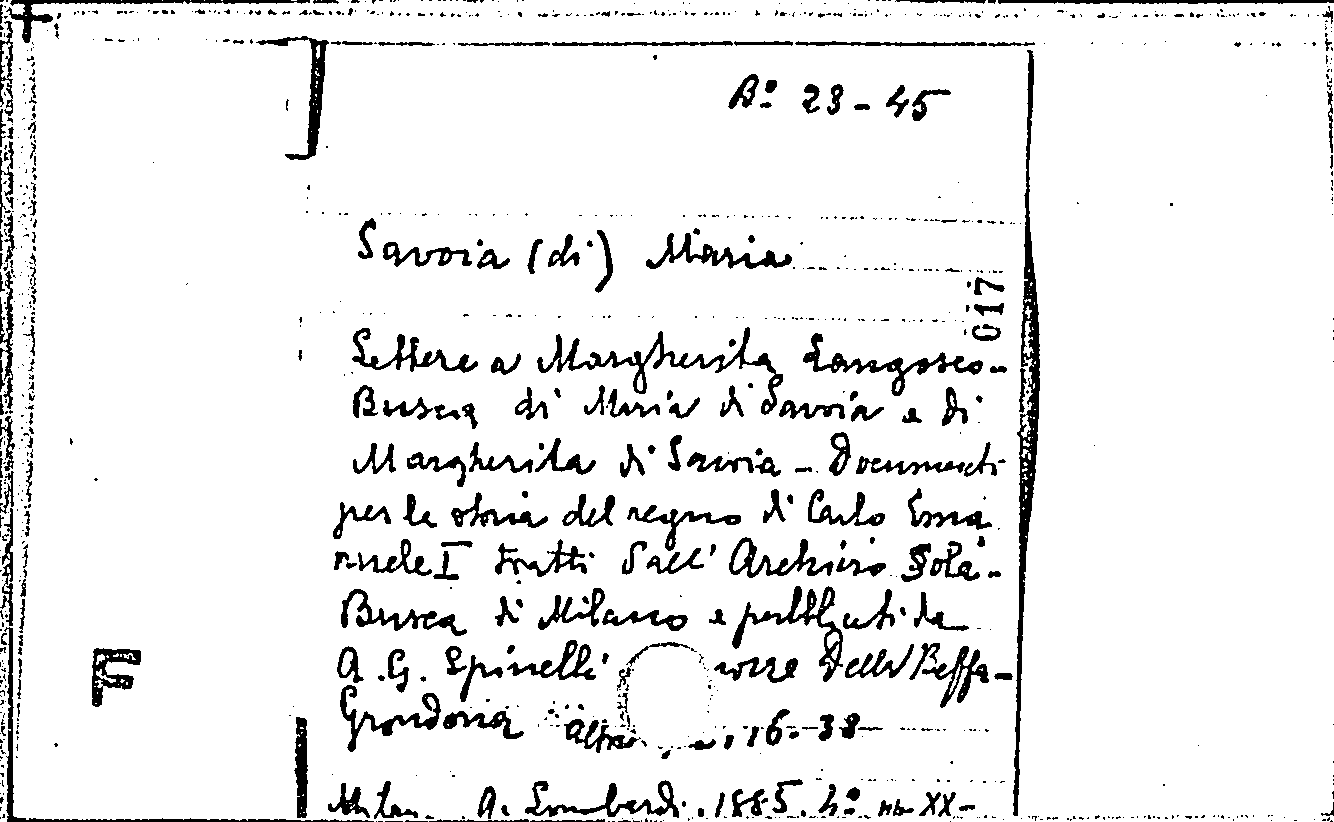 Bº 23-45
Savoia (di) Maria
017
Lettere a Margherita Langosco-
Busca di Maria di Savoia e di
Margherita di Savoia - Documenti
per la storia del regno di Carlo Ema
nuele I tratti dall' Archivio Sola-
Busca di Milano e pubblicati da
A. G. Spinelli nozze Della Beffa-
F
Grondona 16-38
Milan. A. Lombardi. 1885. 4º XX-